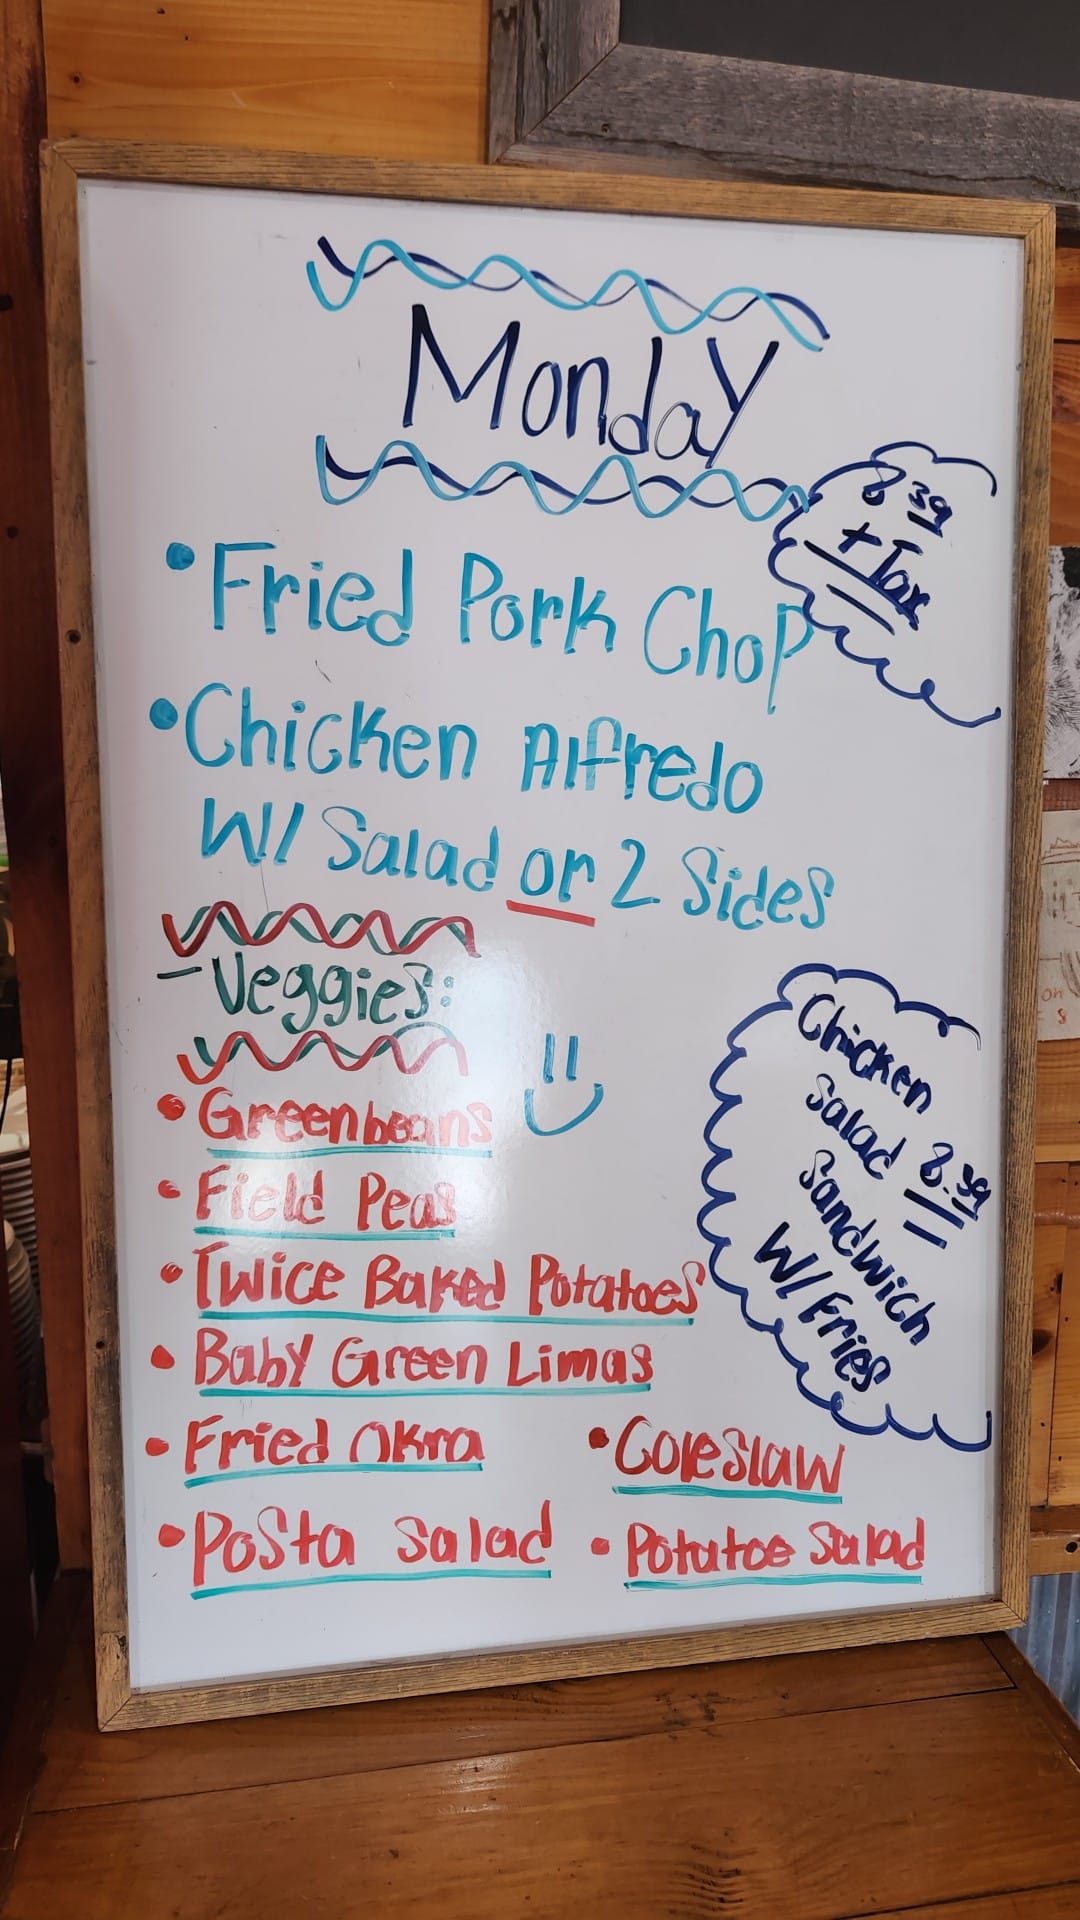 Monday
8 39
+ Tax
• Fried Pork Chop
• Chicken Alfredo
W/ Salad or 2 Sides
- Veggies:
• Greenbeans
• Field Peas
• Twice Baked Potatoes
• Baby Green Limas
• Fried Okra
• Coleslaw
• Pasta Salad
• Potatoe Salad
Chicken
Salad 8.39
Sandwich
W/ Fries